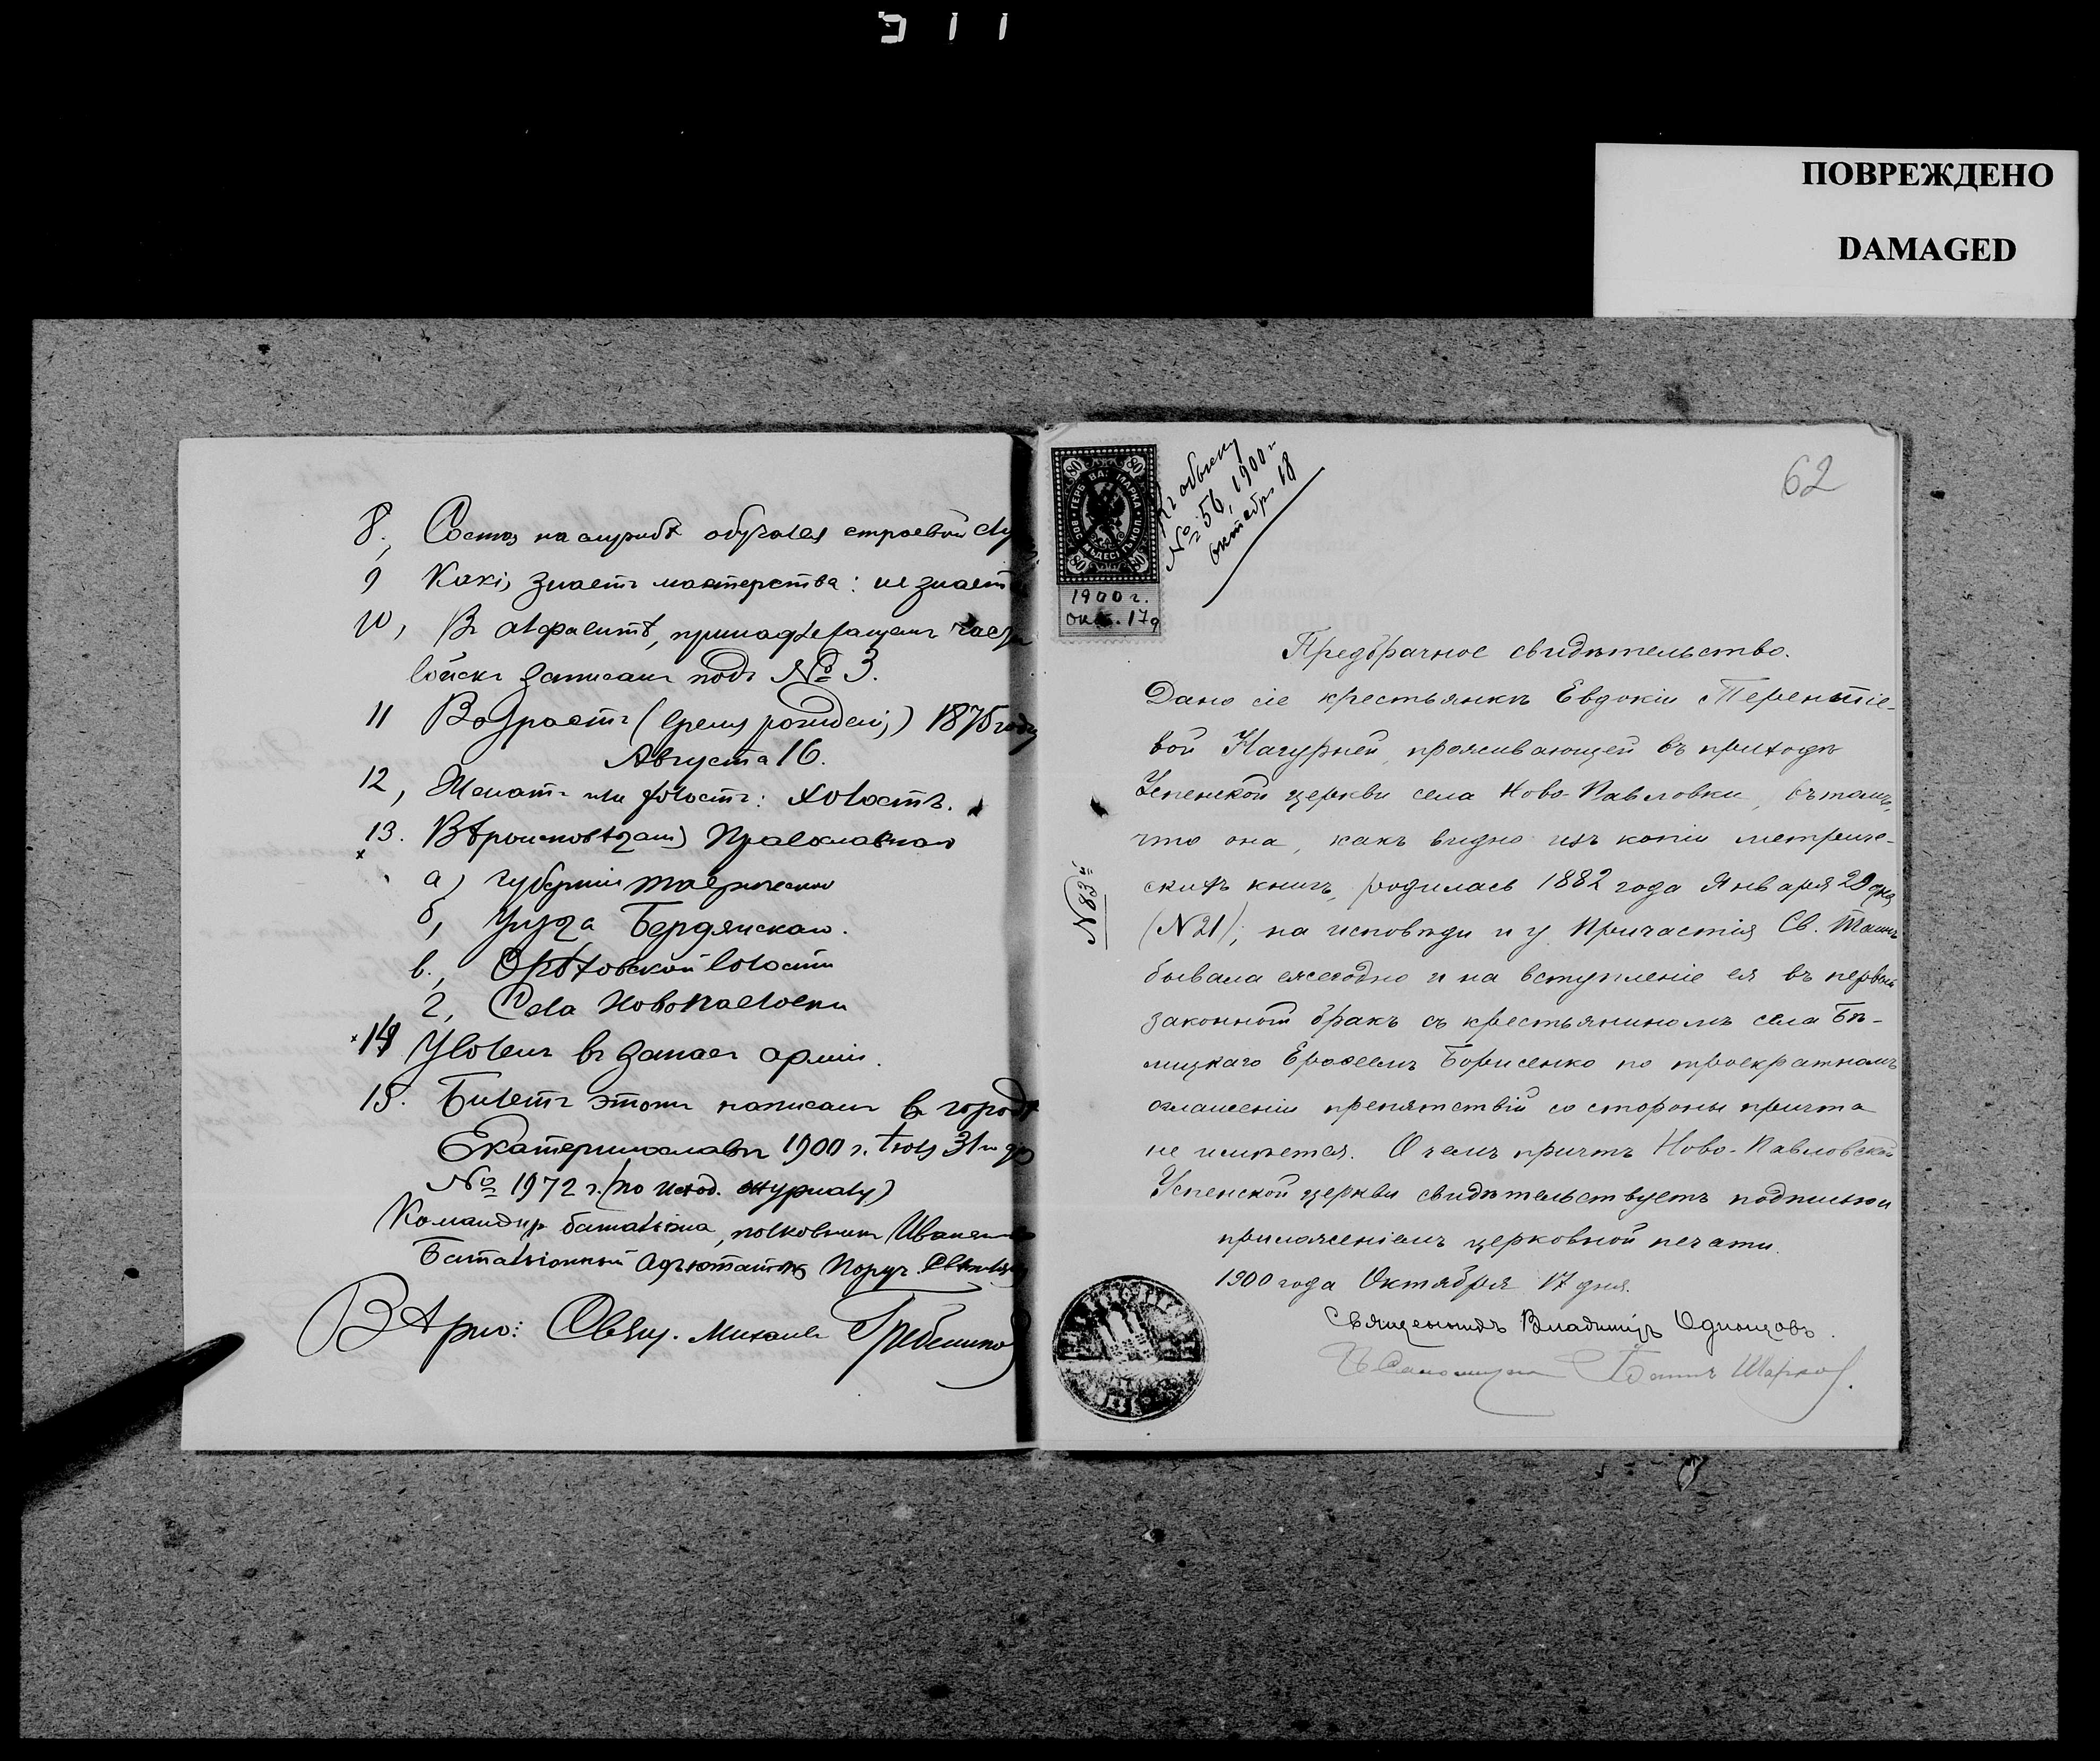 ПОВРЕЖДЕНО
DAMAGED
8., Состоя на службѣ обучался строевой
9 Какія знаетъ мастерства: не знаетъ
10, Въ алфавитѣ, принадлежащемъ части
войскъ записанъ подъ № 3.
11 Возрастъ (время рожденія) 1875 года
Августа 16.
12, Женатъ или холостъ: холостъ.
13. Вѣроисповѣданія Православнаго
а) Губерніи Таврической
б, Уѣзда Бердянскаго.
в., Орѣховской волости
г, Села Новопавловки
14 Уволенъ въ запасъ арміи.
15. Билетъ этотъ написанъ въ городѣ
Екатеринославѣ 1900 г. Іюля 31 дня
№ 1972 г. (по исход. журналу)
Командиръ баталіона, полковникъ
Баталіонный Адъютантъ Поруч.
Вѣрно: Свящ. Михаилъ Гребинко
80 80
ГЕРБОВАЯ МАРКА ВОСЕМЬДЕСЯТЪ КОП.
80 80
1900 г.
окт. 17 д
Къ обыску
№ 56, 1900 г
октябр 18
62
№ 83й
Предбрачное свидѣтельство.
Дано сіе крестьянкѣ Евдокіи Терентіе-
вой Кагурней, проживающей въ приходѣ
Успенской церкви села Ново-Павловки, въ томъ,
что она, какъ видно изъ копіи метриче-
скихъ книгъ, родилась 1882 года Января 20 дня
(№ 21), на исповѣди и у Причастія Св. Таинъ
бывала ежегодно и на вступленіе ея въ первый
законный бракъ съ крестьяниномъ села Бѣ-
лицкаго Ерофеемъ Борисенко по троекратномъ
оглашеніи препятствій со стороны причта
не имѣется. О чемъ причтъ Ново-Павловской
Успенской церкви свидѣтельствуетъ подписью и
приложеніемъ церковной печати.
1900 года Октября 17 дня.
Священникъ Владиміръ Одинцовъ.
Псаломщикъ